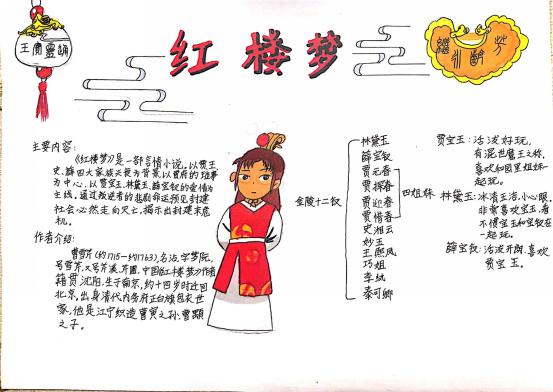 红楼梦
主要内容:
《红楼梦》是一部言情小说。以贾王
史、薛四大家族兴衰为背景,以贾府的琐事
为中心,以贾宝玉、林黛玉、薛宝钗的爱情为
主线,通过叛逆者的悲剧命运预见封建
社会必然走向灭亡,揭示出封建末
危机。
作者介绍:
曹雪芹(约1715—约1763),名沾,字梦阮,
号雪芹,又号芹溪、芹圃,中国《红楼梦》作者
籍贯沈阳,生于南京,约十四岁时迁回
北京,出身清代内务府正白旗包衣世
家,他是江宁织造曹寅之孙,曹顒
之子。
金陵十二钗
林黛玉
薛宝钗
贾元春
贾探春
贾迎春
贾惜春
史湘云
妙玉
王熙凤
巧姐
李纨
秦可卿
四姐妹
贾宝玉:活泼好玩,
有混世魔王之称,
喜欢和园里姐妹一
起玩。
林黛玉:冰清玉洁,小心眼,
非常喜欢宝玉,看
不惯宝玉和宝钗在
一起玩。
薛宝钗:活泼开朗,喜欢
贾宝玉。